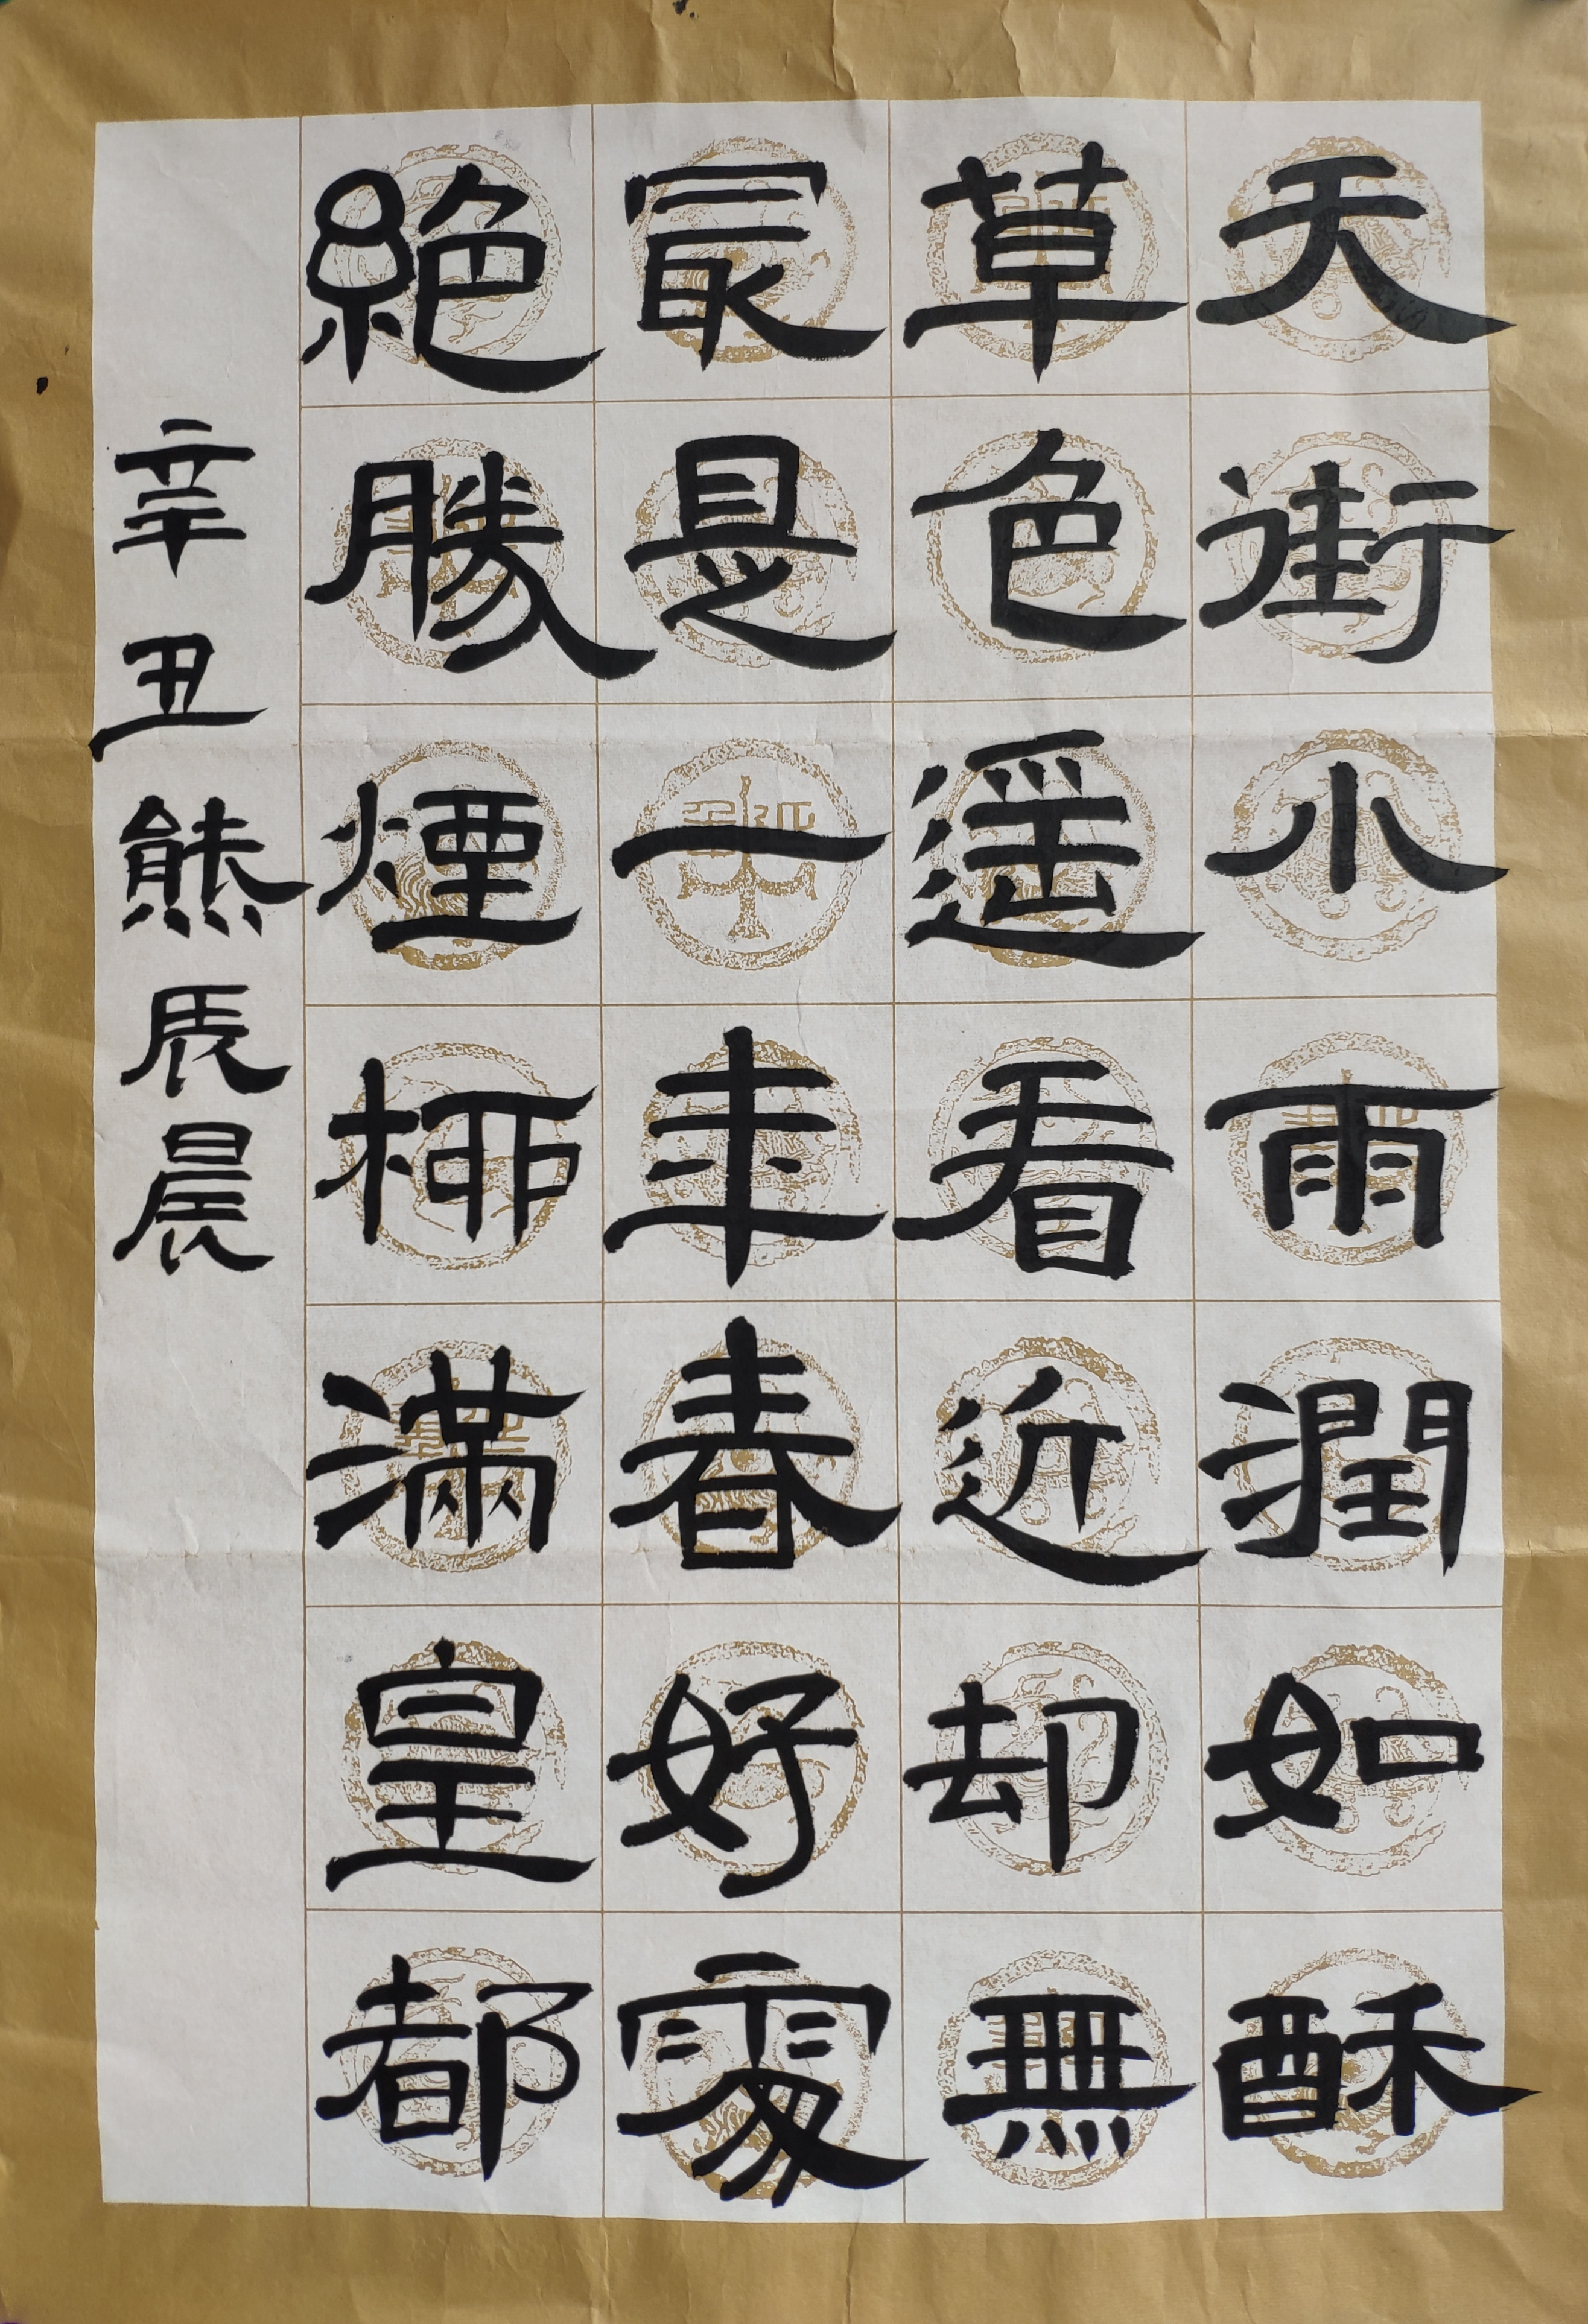 天街小雨潤如酥
草色遥看近却無
最是一年春好處
絕勝煙柳滿皇都
辛丑熊辰晨